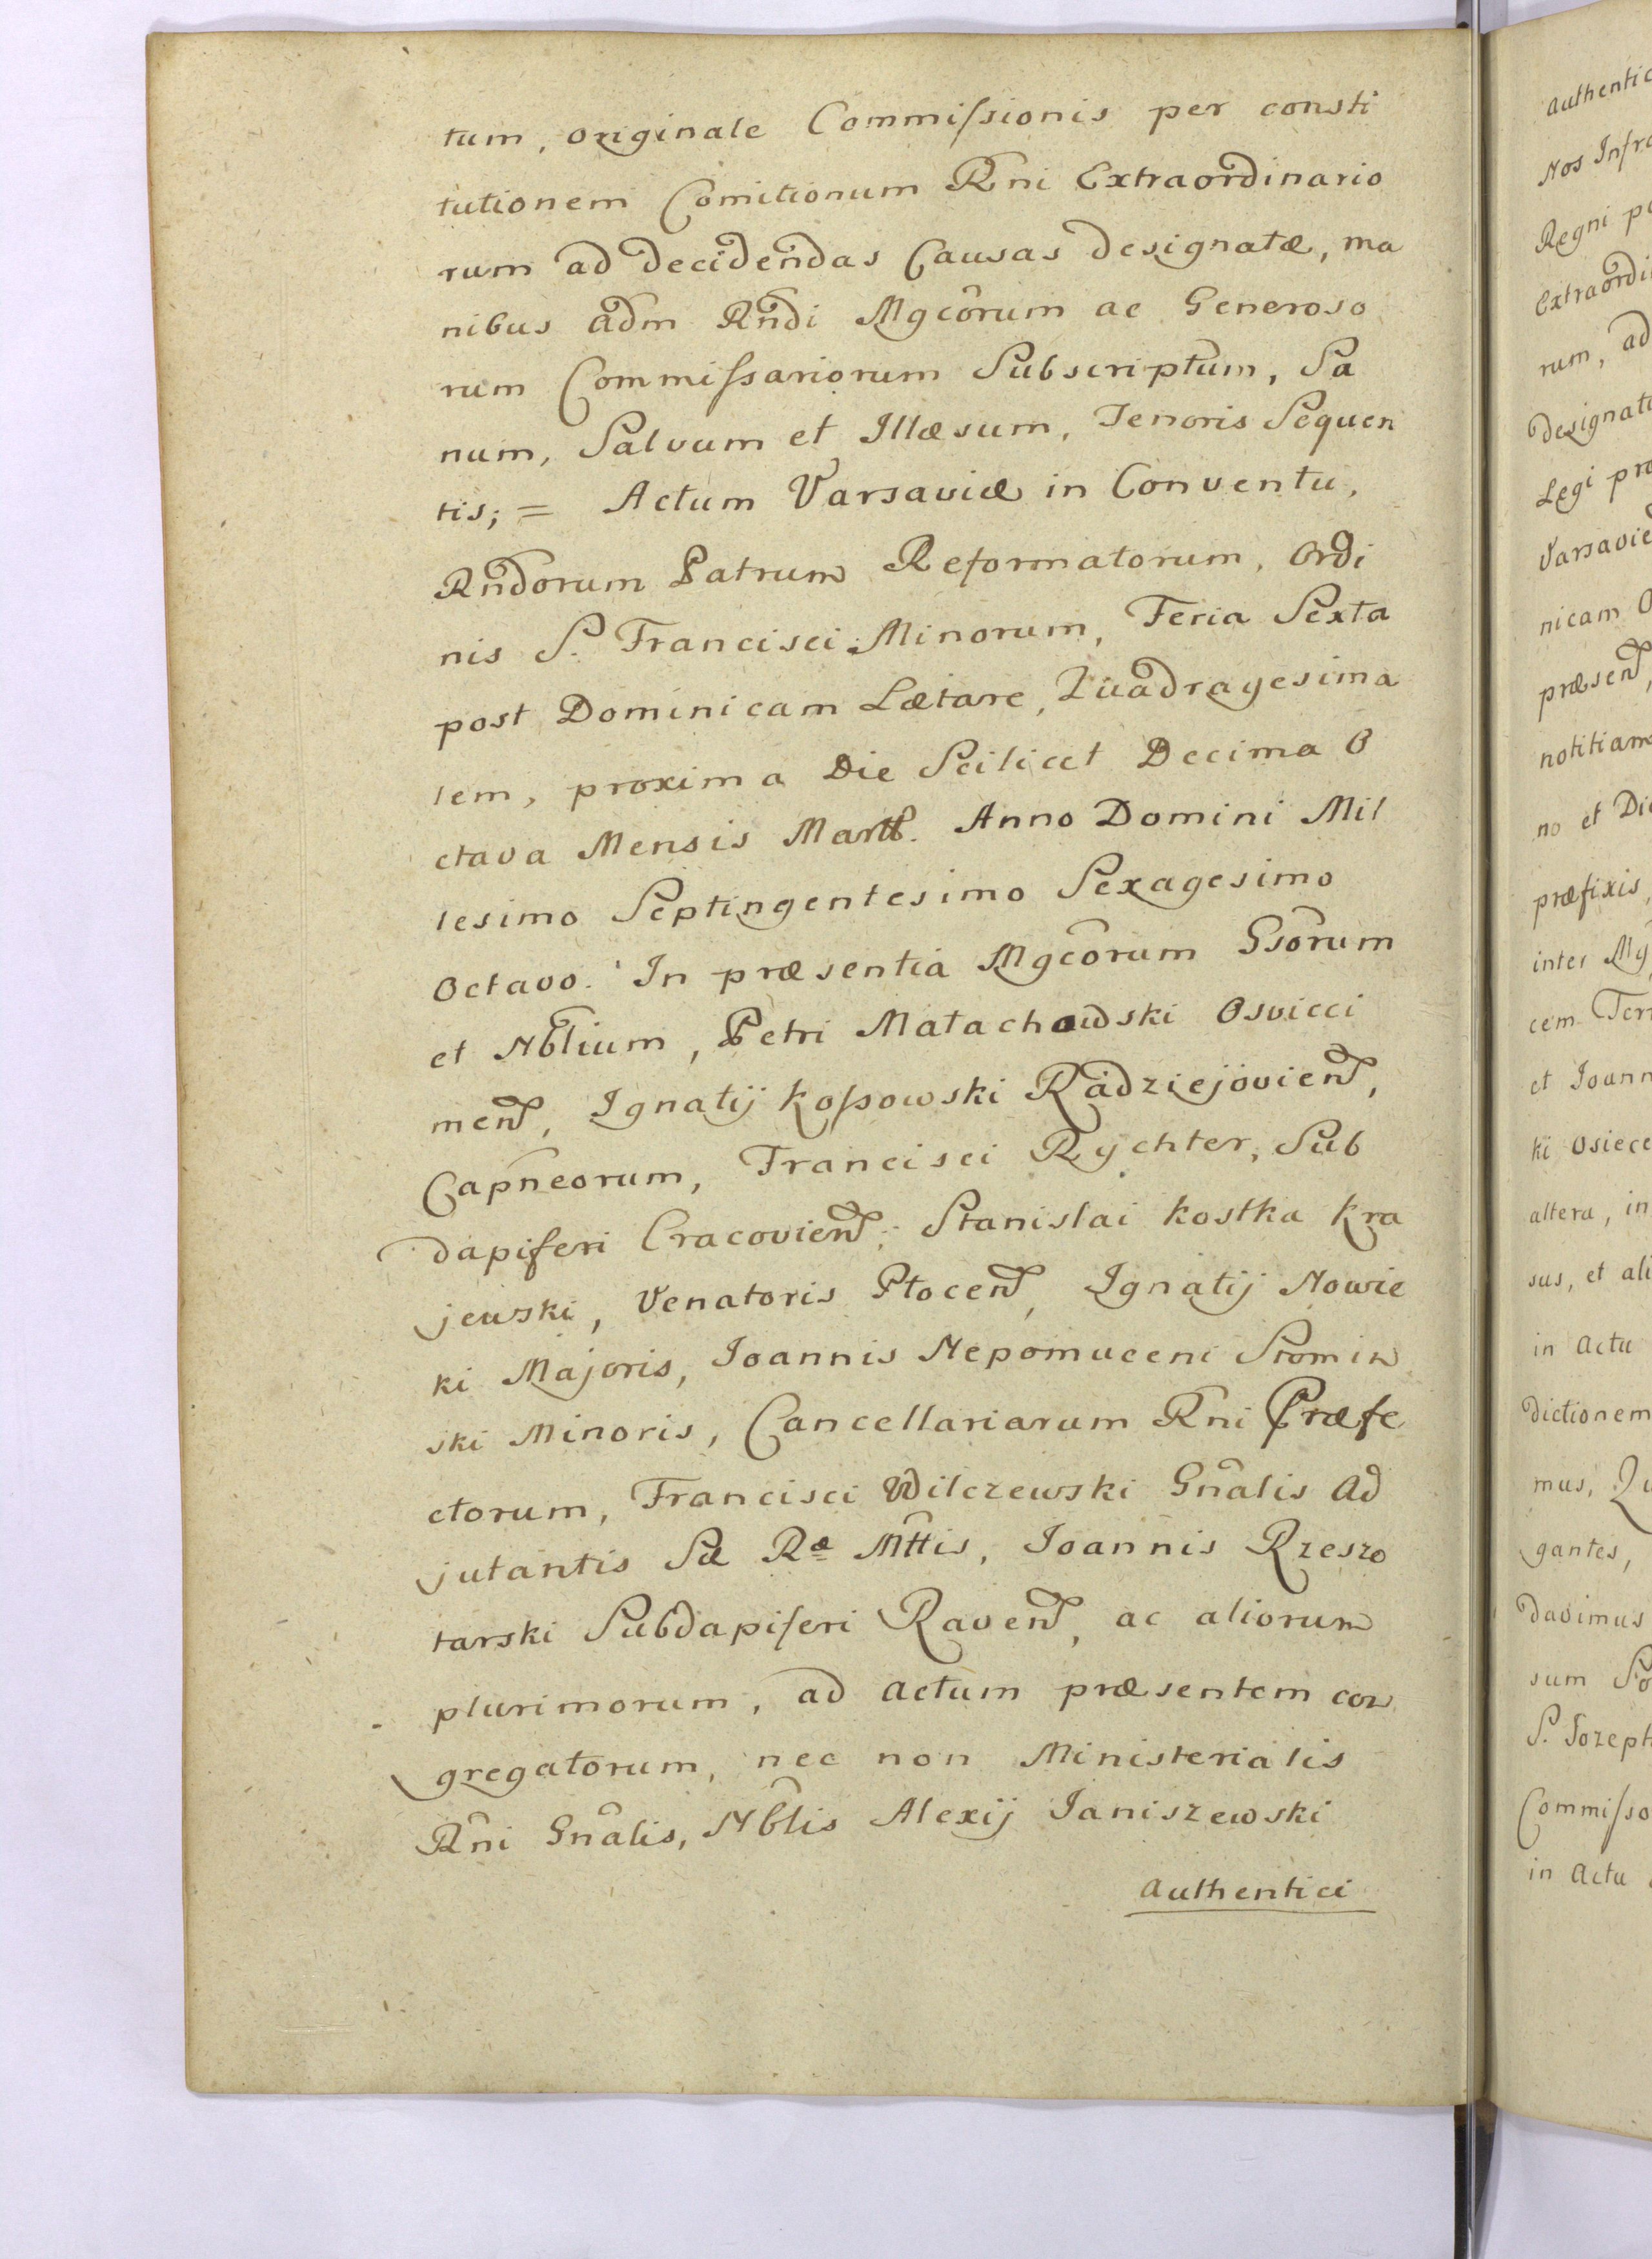 tum, originale Commissionis per consti
tutionem Comitionum Rni Extraordinario
rum ad decidendas Causas designatæ, ma
nibus adm Rndi Mgcorum ac Generoso
rum Commissariorum Subscriptum, Sa
num, Salvum et Illæsum, Tenoris Sequen
tis; = Actum Varsaviæ in Conventu,
Rndorum Patrum Reformatorum, Ordi
nis S. Francisci Minorum, Feria Sexta
post Dominicam Lætare, Quadragesima
lem, proxima Die Scilicet Decima O
ctava Mensis Martii. Anno Domini Mil
lesimo Septingentesimo Sexagesimo
Octavo. In præsentia Mgcorum Gsorum
et Nblium, Petri Małachowski Osvieci
men, Ignatij Kossowski Radziejovien,
Capneorum, Francisci Rychter, Sub
dapiferi Cracovien, Stanislai Kostka Kra
jewski, Venatoris Płocen, Ignatij Nowie
ki Majoris, Joannis Nepomuceni Słomin
ski Minoris, Cancellariarum Rni Præfe
ctorum, Francisci Wilczewski Gnalis Ad
jutantis Sæ Ræ Mttis, Joannis Rzeszo
tarski Subdapiferi Raven, ac aliorum
plurimorum, ad actum præsentem con
gregatorum, nec non Ministerialis
Rni Gnalis, Nblis Alexij Janiszewski
Authentici
authentic
Nos Infra
Regni
Extraordi
rum, ad
designatæ
Legi
Varsavie
nicam
præsen,
notitiam
no et Die
præfixis,
inter
cem
et Joann
ki Osiece
altera, in
sus, et ali
in Actu
dictionem
mus,
gantes,
davimus
sum
S. Jozeph
Commisso
in Actu